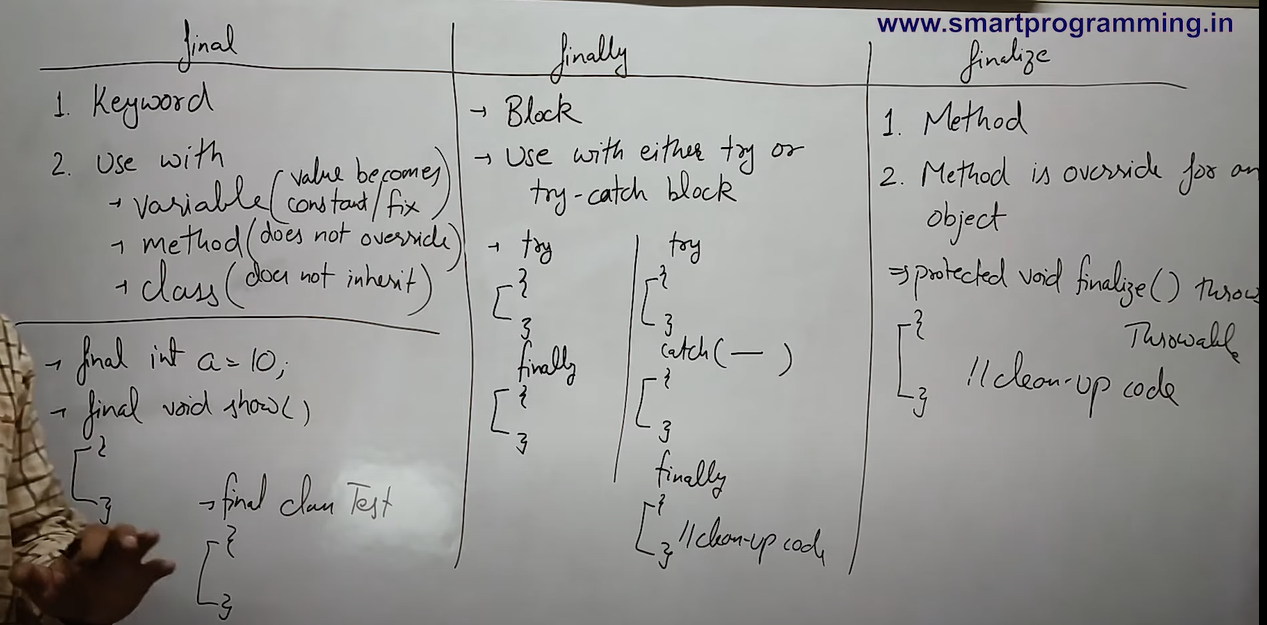 www.smartprogramming.in
final
1. Keyword
2. Use with
→ variable (value becomes
constant/fix)
→ method (does not override)
→ class (does not inherit)
→ final int a = 10;
→ final void show()
{
}
→ final class Test
{
}
finally
→ Block
→ Use with either try or
try-catch block
→ try
{
}
finally
{
}
try
{
}
catch( — )
{
}
finally
{
} //clean-up code
finalize
1. Method
2. Method is override for an
object
⇒ protected void finalize() throws
Throwable
{
//clean-up code
}